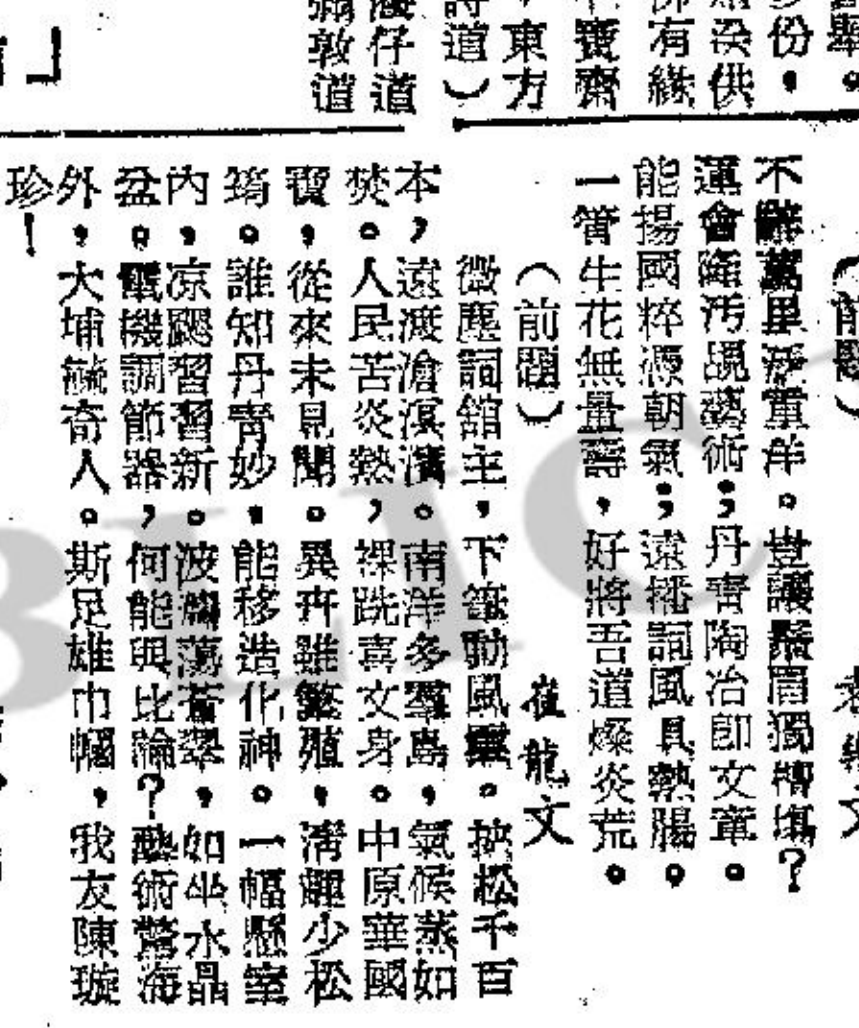 舉。
份，
供
佛有緣
寶齋
，東方
詩道）
仔道
敦道
」
（前題）
文
不辭萬里涉重洋。豈讓鬚眉獨擅場？
運會隆汚覘藝術；丹青陶冶卽文章。
能揚國粹憑朝氣；遠播詞風具熱腸。
一管生花無量壽，好將吾道燦炎荒。
（前題）
崔龍文
微塵詞舘主，下筆動風雲。挾松千百
本，遠渡滄溟濱。南洋多羣島，氣候蒸如
焚。人民苦炎熱，裸跣喜文身。中原華國
寶，從來未見聞。異卉雖繁殖，淸翹少松
筠。誰知丹靑妙，能移造化神。一幅懸室
內，凉颸習習新。波濤蕩蒼翠，如坐水晶
盆。電機調節器，何能與比論？藝術驚海
外，大埔毓奇人。斯足雄巾幗，我友陳璇
珍！